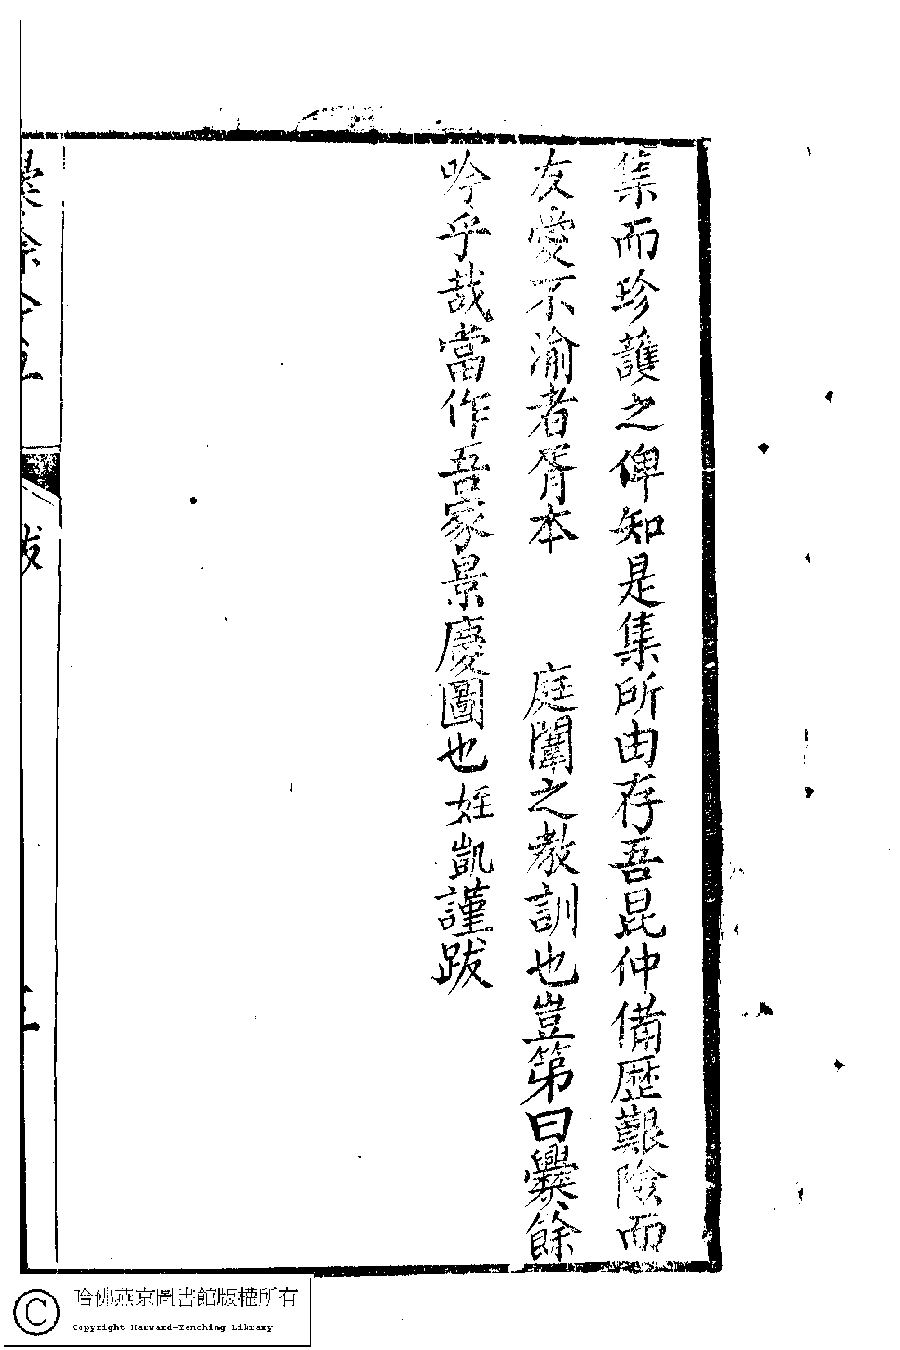 集而珍護之俾知是集所由存吾昆仲備歷艱險而
友愛不渝者胥本　庭闈之教訓也豈第曰爨餘
吟乎哉當作吾家景慶圖也姪凱謹跋
爨餘吟
跋
哈佛燕京圖書館版權所有
Copyright Harvard-Yenching Library